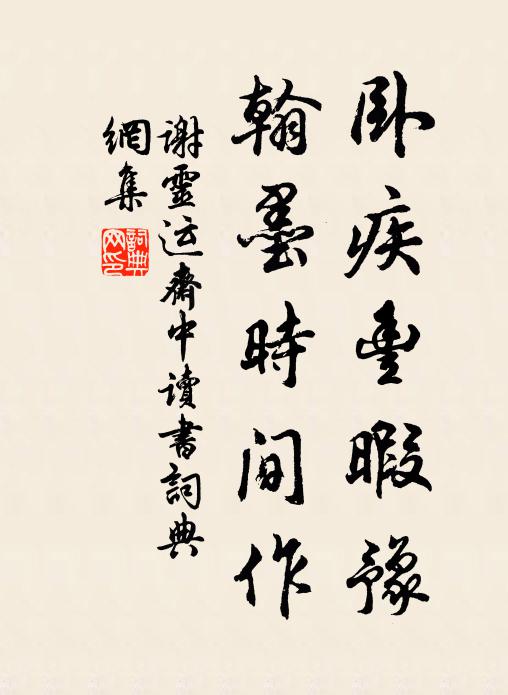 卧疾豊暇豫
翰墨時间作
谢靈运齋中讀書詞典
網集
詞典
网印